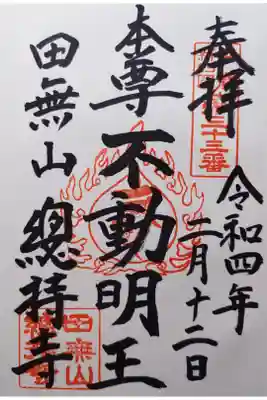 奉拝
三十三番
令和四年
二月十二日
本尊不動明王
田無山總持寺
田無山